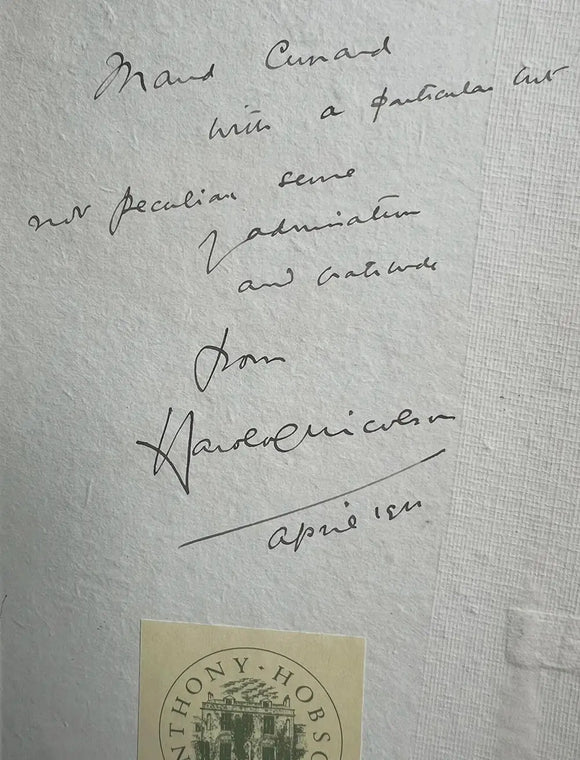 Maud Cunard
with a particular but
not peculiar sense
of admiration
and gratitude
from
Harold Nicolson
April
NTHONY · HOBSO